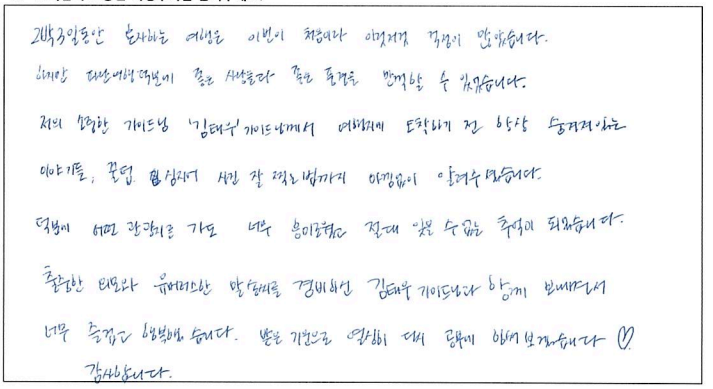 2박3일동안 혼자하는 여행은 이번이 처음이라 이것저것 걱정이 많았습니다.
하지만 다난여행 덕분에 좋은 사람들과 좋은 풍경을 만끽할 수 있었습니다.
저의 소중한 가이드님 '김태우' 가이드님께서 여행지에 도착하기 전 항상 숨겨져있는
이야기들, 꿀팁, 심지어 사진 잘 찍는 법까지 아낌없이 알려주셨습니다.
덕분에 어떤 관광지를 가도 너무 흥미로웠고 절대 잊을 수 없는 추억이 되었습니다.
출중한 외모와 유머러스한 말솜씨를 겸비하신 김태우 가이드님과 함께 보내면서
너무 즐겁고 행복했습니다. 받은 기운으로 열심히 다시 공부에 임해보겠습니다 ♡
감사합니다.